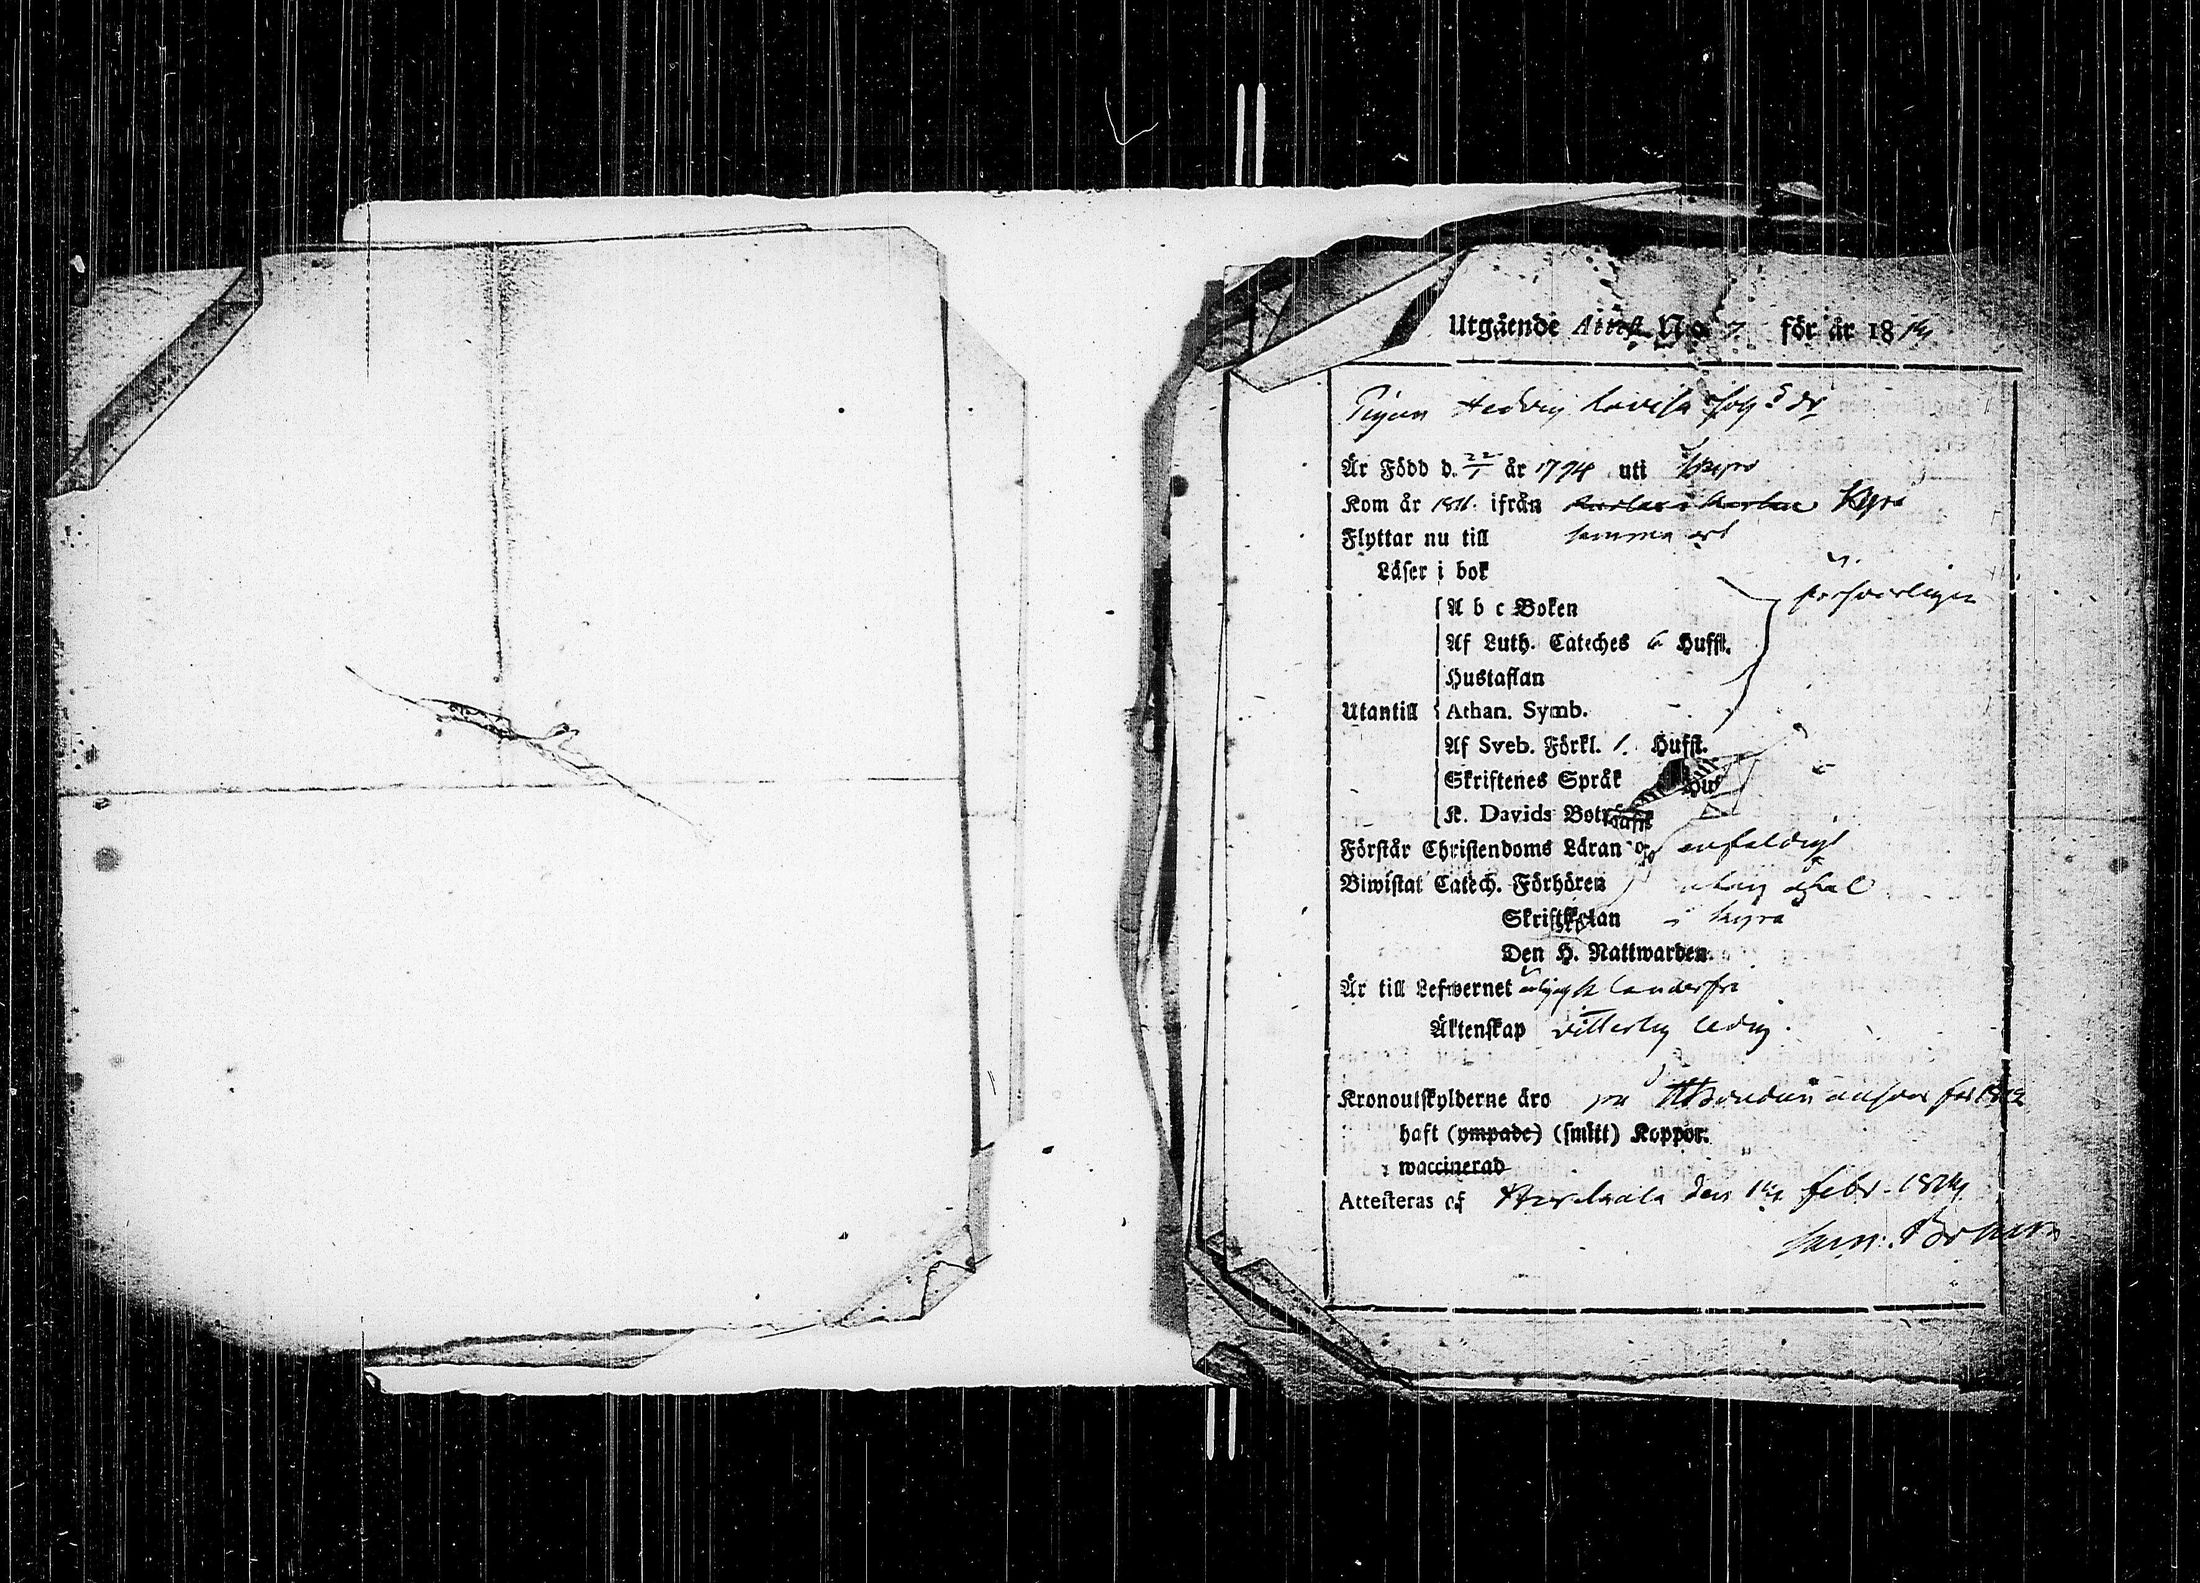 Utgående Attest No 7. för år 1814
Pigan Hedvig Lovisa
Är Född d. 22/7 år 1774 uti Kyro
Kom år 1811. ifrån Kyro
Flyttar nu till samma ort
Läser i bok
försvarligen
A b c Boken
Af Luth. Cateches 6 Hufst.
Hustaflan
Utantill Athan. Symb.
Af Sveb. Förkl. 1. Hufst.
Skriftenes Språk
K. Davids Bot
Förstår Christendoms Läran enfaldigt
Biwistat Catech. Förhören utan
Skriftskolan i Kyro
Den H. Nattwarden
Är till Lefwernet
Äktenskap vitterlig ledig.
Kronoutskylderne äro för
haft (ympade) (smitt) Koppor.
waccinerad
Attesteras af den 14 febr. 1814